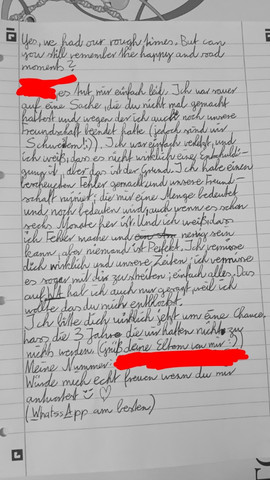 Yes, we had our rough times. But can
you still remember the happy and rad
moments?
es tut mir einfach leid. Ich war sauer
auf eine Sache, die du nicht mal gemacht
hattest und wegen der ich auch noch unsere
Freundschaft beendet hatte (jedoch sind wir
Schwestern!;)). Ich war einfach verletzt und
ich weiß, dass es nicht wirklich eine Entschuldi-
gung ist, aber das ist der Grund. Ich habe einen
Fehler gemacht und unsere Freund-
schaft ruiniert, die mir eine Menge bedeutet
und noch bedeuten wird, auch wenn es schon
sechs Monate her ist. Und ich weiß dass
ich Fehler mache und nervig sein
kann, aber niemand ist Perfekt. Ich vermisse
dich wirklich und unsere Zeiten; ich vermisse
es sogar mit dir zu streiten; einfach alles. Das
auf hab ich auch nur gesagt weil ich
wollte das du nicht
Ich bitte dich wirklich jetzt um eine Chance,
lass die 3 Jahre die wir hatten nicht zu
nichts werden. (Grüß deine Eltern von mir :))
Meine Nummer:
Würde mich echt freuen wenn du mir
antwortest ♡
(WhatsApp am besten)